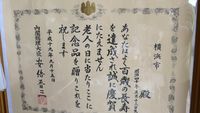 横浜市
殿
あなたが百歳の長寿
を達成され誠に慶賀
にたえません
老人の日に当たりここに
記念品を贈りこれを
祝します
平成十九年九月十五日
内閣総理大臣 安倍晋三